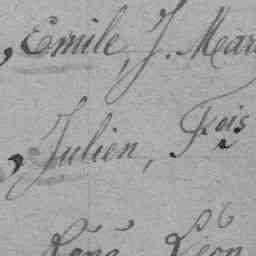 , Emile, J. Mar
, Julien, Fois
René Léon